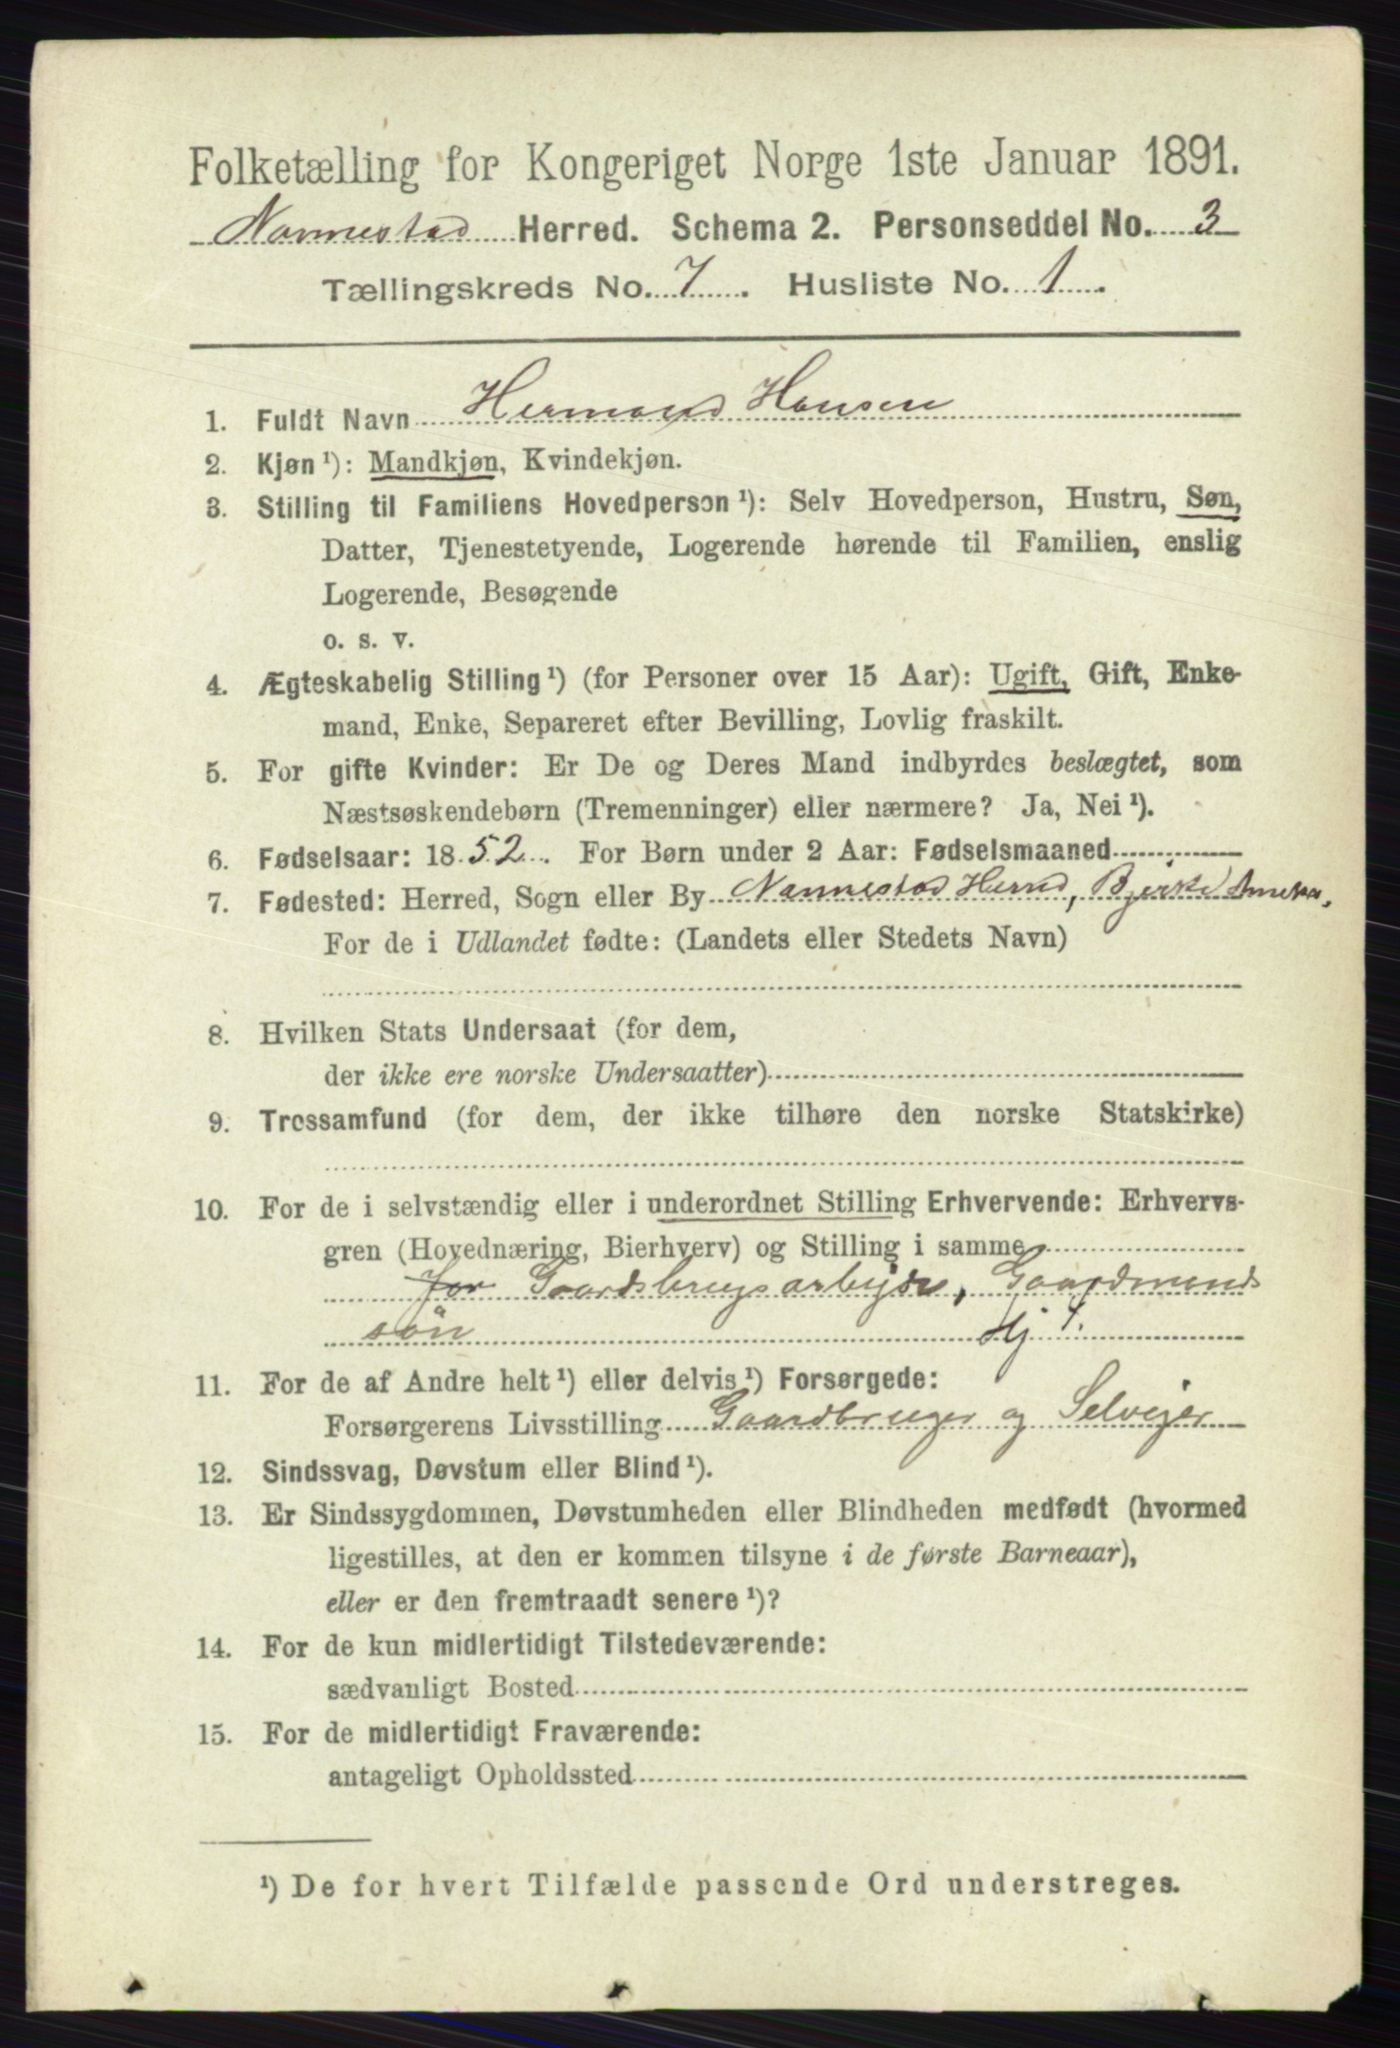 Folketælling for Kongeriget Norge 1ste Januar 1891.
Nannestad Herred. Schema 2. Personseddel No. 3
Tællingskreds No. 7. Husliste No. 1.
1. Fuldt Navn Hermand Hansen
2. Kjøn¹): Mandkjøn, Kvindekjøn.
3. Stilling til Familiens Hovedperson¹): Selv Hovedperson, Hustru, Søn,
Datter, Tjenestetyende, Logerende hørende til Familien, enslig
Logerende, Besøgende
o. s. v.
4. Ægteskabelig Stilling¹) (for Personer over 15 Aar): Ugift, Gift, Enke-
mand, Enke, Separeret efter Bevilling, Lovlig fraskilt.
5. For gifte Kvinder: Er De og Deres Mand indbyrdes beslægtet, som
Næstsøskendebørn (Tremenninger) eller nærmere? Ja, Nei¹).
6. Fødselsaar: 1852. For Børn under 2 Aar: Fødselsmaaned
7. Fødested: Herred, Sogn eller By Nannestad Herred, Bjerke Anneks.
For de i Udlandet fødte: (Landets eller Stedets Navn)
8. Hvilken Stats Undersaat (for dem,
der ikke ere norske Undersaatter)
9. Trossamfund (for dem, der ikke tilhøre den norske Statskirke)
10. For de i selvstændig eller i underordnet Stilling Erhvervende: Erhvervs-
gren (Hovednæring, Bierhverv) og Stilling i samme
for Gaardsbrugsarbejde, Gaardmands
søn Hj
11. For de af Andre helt¹) eller delvis¹) Forsørgede:
Forsørgerens Livsstilling Gaardbruger og Selvejer
12. Sindssvag, Døvstum eller Blind¹).
13. Er Sindssygdommen, Døvstumheden eller Blindheden medfødt (hvormed
ligestilles, at den er kommen tilsyne i de første Barneaar),
eller er den fremtraadt senere¹)?
14. For de kun midlertidigt Tilstedeværende:
sædvanligt Bosted
15. For de midlertidigt Fraværende:
antageligt Opholdssted
¹) De for hvert Tilfælde passende Ord understreges.